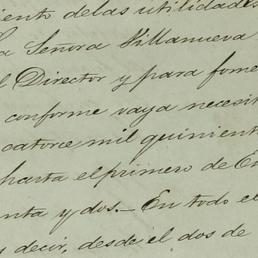 iento de las utilidades
la Señora Villanueva
l Director y para fome
conforme vaya necesit
catorce mil quinient
harta el primero de En
nta y dos. — En todo el
decir, desde el dos de